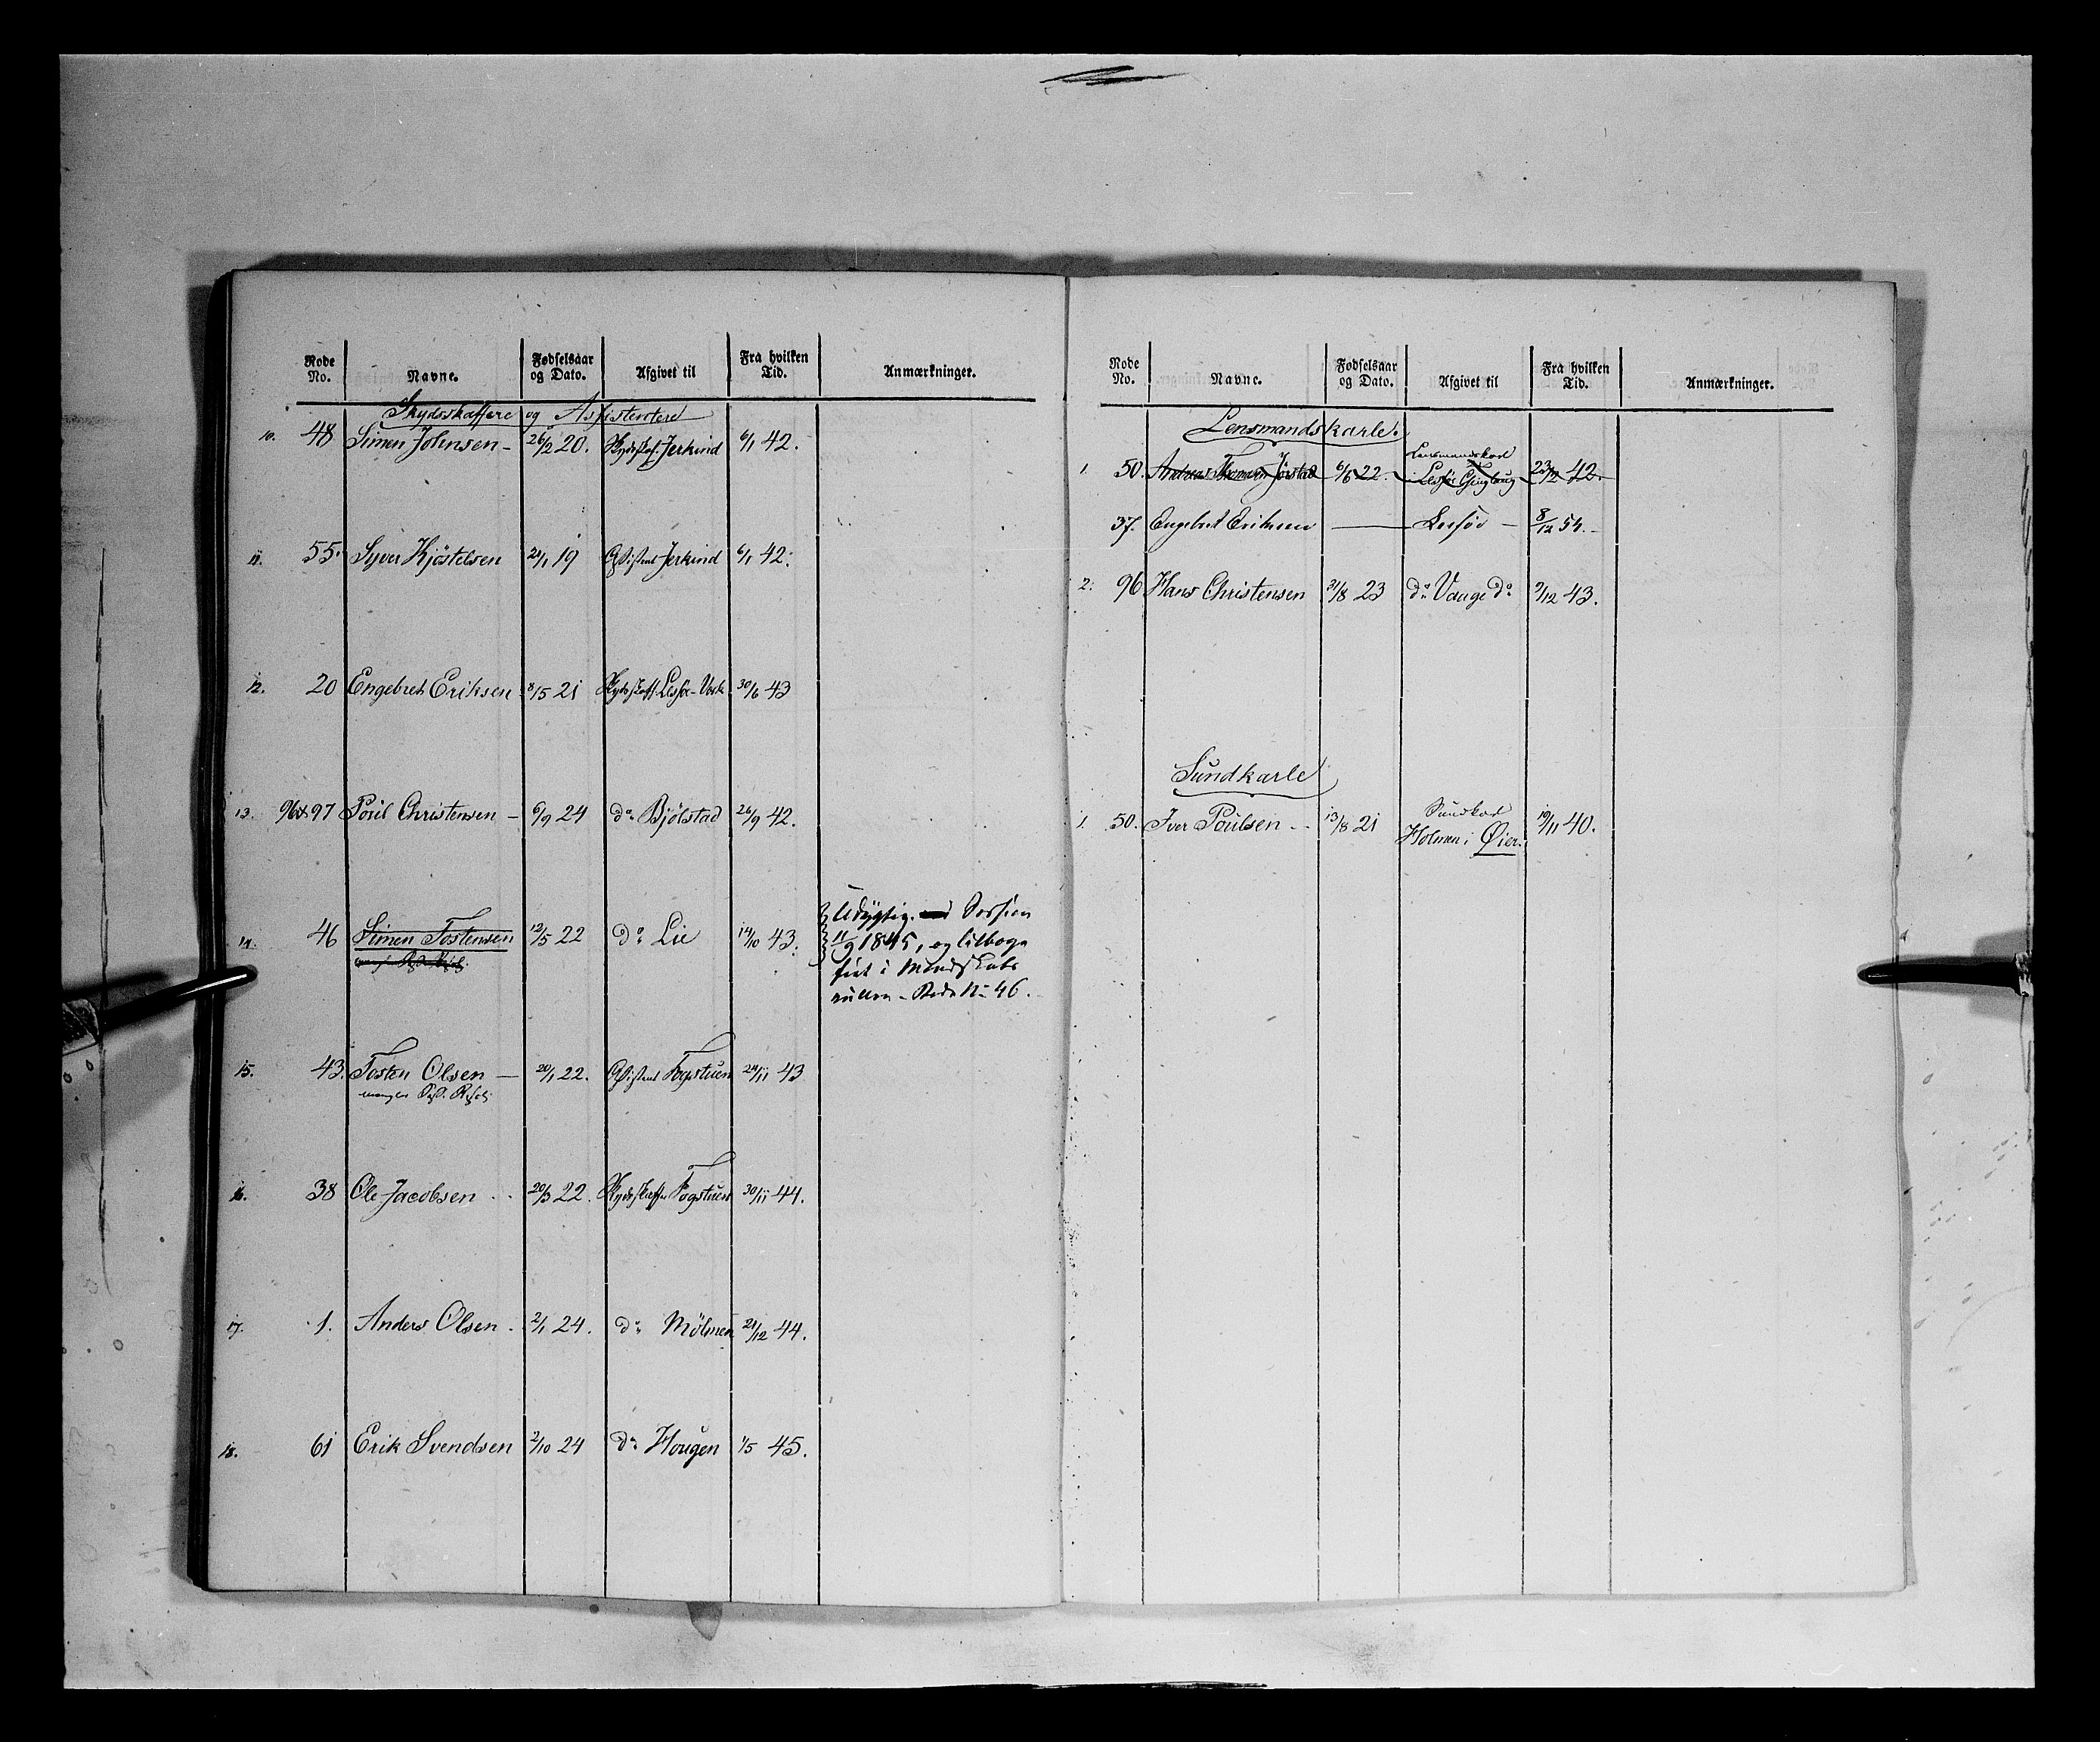 Rode No. Navne. Fødselsaar og Dato. Afgivet til Fra hvilken Tid. Anmærkninger.
Skydsskaffere og Assistentere
10. 48 Simen Johnsen - 26/2 20. Skydsskaf. Jerkind 6/1 42.
11. 55. Syver Kjöstelsen 24/1 19 Assistent Jerkind 6/1 42.
12. 20 Engebret Eriksen 8/5 21 Skydsskaff. Lesje-Værk 30/6 43
13. 96&97 Poul Christensen - 6/9 24 do Bjölstad 26/9 42.
14. 46 Simen Tostensen 12/5 22 do Lie 14/10 43. Udygtig. Session
11/9 1845, og tilbage
ført i Mandskabs
rullen - Rode No 46.
15. 43. Tosten Olsen - 20/1 22. Assistent Fogstuen 24/11 43
mangler
16. 38 Ole Jacobsen - - 20/3 22. Skydsskaffer Fogstuen 30/11 44.
17. 1. Anders Olsen - 2/1 24. do Mölmen 21/12 44.
18. 61 Erik Svendsen 2/10 24 do Hougen 1/5 45.
Rode No. Navne. Fødselsaar og Dato. Afgivet til Fra hvilken Tid. Anmærkninger.
Lensmandskarle.
1. 50. Andreas Thomasen Jörstad 6/6 22. Lensmandskarl
i Lesje 23/12 42.
37. Engebret Eriksen — Lesje - 8/12 54. -
2. 96 Hans Christensen 31/8 23 do Vaage do 9/12 43.
Sundkarle
1. 50. Iver Poulsen - - 13/8 21 Sundkarl
Holmen i Øier. 19/11 40.